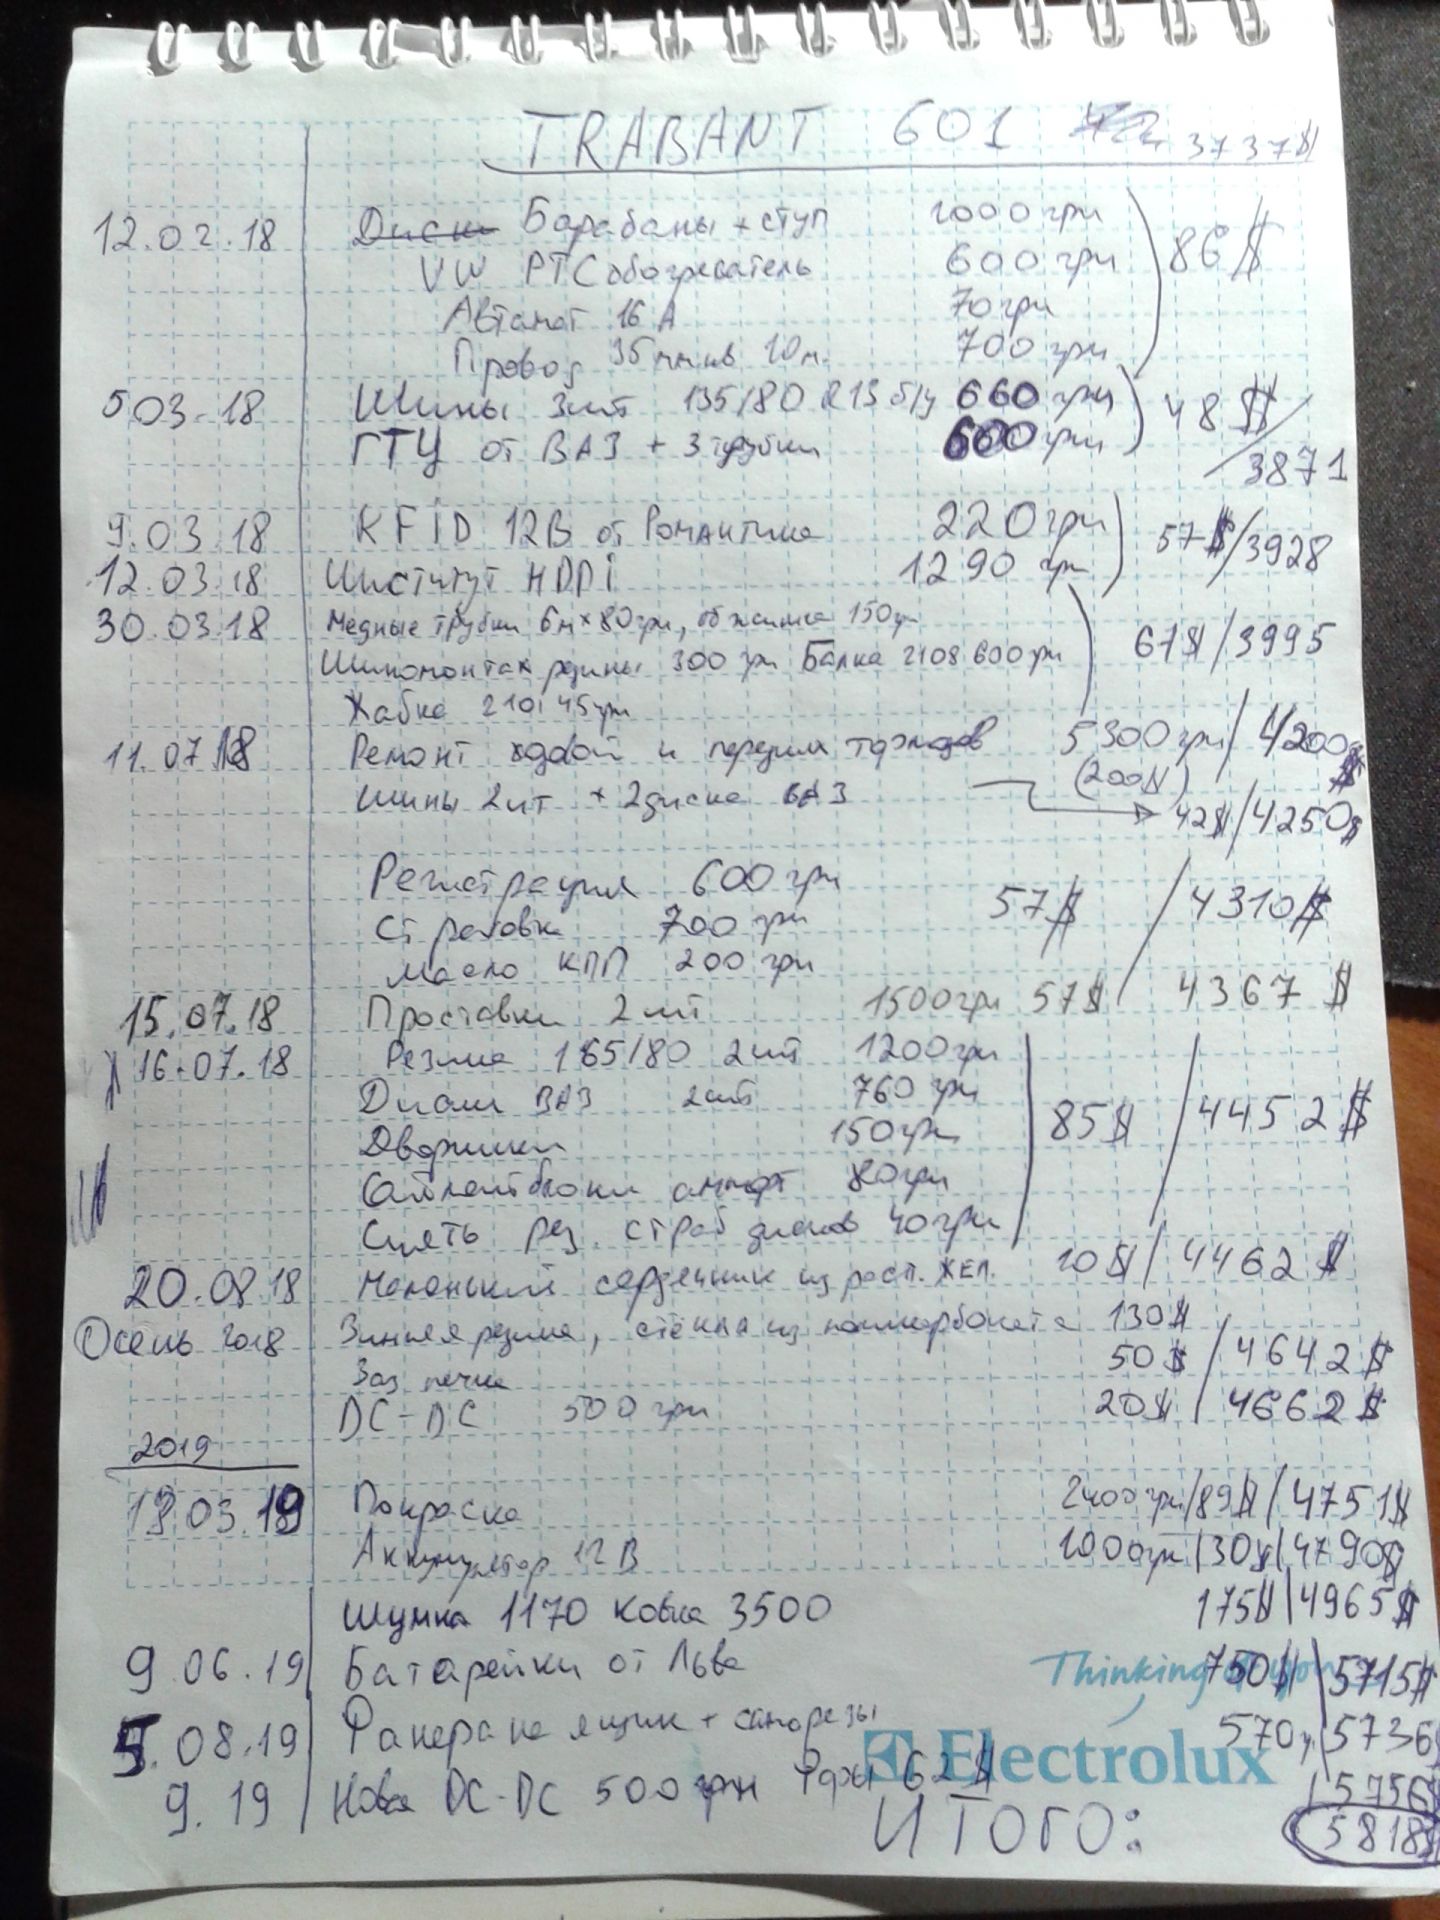 TRABANT 601 3737$
12.02.18 Диски Барабаны + ступ 1000грн
VW PTC обогреватель 600грн 86$
Автомат 16 А 70грн
Провод 35 мм кв 10м. 700грн
5 03.18 Шины 3шт 135/80 R13 б/у 660грн 48$
ГТЦ от ВАЗ + 3 трубки 600грн /3871
9.03.18 KFiD 12В от Романтика 220грн 57$/3928
12.03.18 Институт 1290 грн
30.03.18 Медные трубки 6м×80грн, обжимка 150грн
Шиномонтаж резины 300 грн Балка 2108 600грн 67$/3995
45грн
11.07.18 Ремонт ходовой и передних тормозов 5300грн/4200$
(200$)
Шины 2шт + 2диска ВАЗ 42$/4250$
Регистрация 600грн
Страховка 700грн 57$ /4310$
Масло КПП 200грн
15.07.18 Проставки 2шт 1500грн 57$/ 4367$
16.07.18 Резина 165/80 2шт 1200грн
Диски ВАЗ 2шт 760грн
Дворники 150грн 85$ /4452$
Сайлентблоки аморт 80грн
Снять рез. с траб дисков 40грн
20.08.18 Маленький сердечник из расп. жел. 10$/ 4462$
Осень 2018 Зимняя резина, стёкла из поликарбоната 130$
Ваз печка 50$ /4642$
DC-DC 500грн 20$/ 4662$
2019
19 03.19 Покраска 2400грн/89$/4751$
Аккумулятор 12В 1000грн/30$/4790$
Шумка 1170 Ковка 3500 175$/4965$
9.06.19 Батарейки от Льва 750$/5715$
Thinking of you
5.08.19 Фанера на ящик + саморезы 570г/5736$
Electrolux
9.19 Новая DC-DC 500грн Фары 62$ /5756$
ИТОГО: 5818$